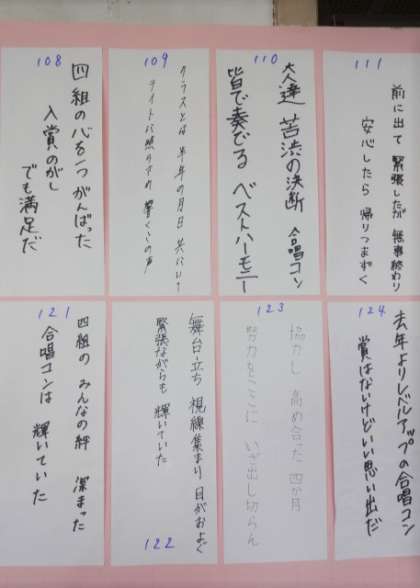 108
四組の心を一つ がんばった
入賞のがし
でも満足だ
109
クラスとは 半年の月日 共にして
ライトに照らされ 響く
の声
110
大人達 苦渋の決断 合唱コン
皆で奏でる ベストハーモニー
111
前に出て 緊張したが 無事終わり
安心したら 帰りつまずく
121
四組の みんなの絆 深まった
合唱コンは 輝いていた
122
舞台立ち 視線集まり 目がおよぐ
緊張ながらも 輝いていた
123
協力し 高め合った 四か月
努力をここに いざ出し切らん
124
去年よりレベルアップの合唱コン
賞はないけどいい思い出だ